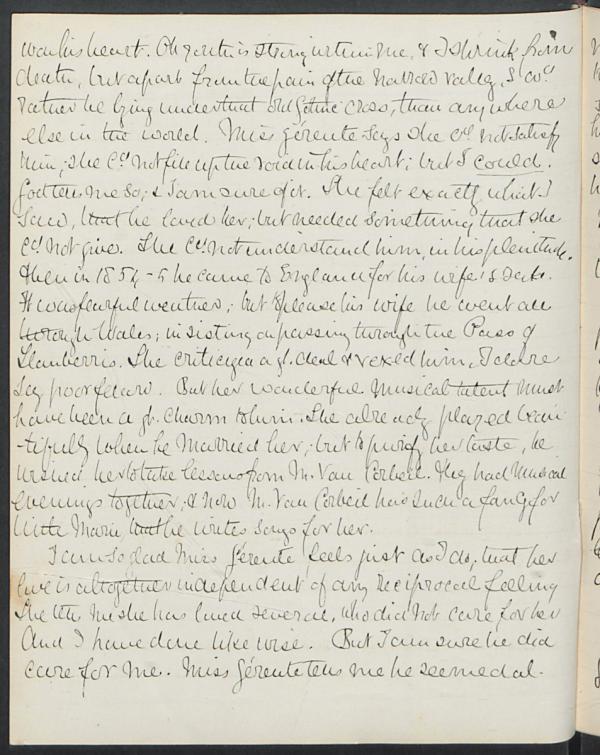 was his heart. Oh youth is strong within me, & I shrink from
death, but apart from the pain of the narrow valley, I wd.
rather be lying under that old Gothic cross, than anywhere
else in the world. Miss Gérente says she cd. not satisfy
him; she cd. not fill up the void in his heart; but I could.
God tells me so; & I am sure of it. She felt exactly what I
saw, that he loved her; but needed something that she
cd. not give. She cd. not understand him, in his plenitude.
Then in 1854-5 he came to England for his wife's sake.
It was fearful weather; but to please his wife he went all
through Wales; insisting on passing through the Pass of
Llanberris. She criticized a gt. deal & vexed him, I dare
say, poor fellow. But her wonderful musical talent must
have been a gt. charm to him. She already played beau-
tifully when he married her; but to purify her taste, he
wished her to take lessons from M. Van Corbeil. They had musical
evenings together, & now M. Van Corbeil has such a fancy for
little Marie, that he writes songs for her.
I am so glad Miss Gérente feels just as I do, that her
love is altogether independent of any reciprocal feeling
She tells me she has loved several, who did not care for her
And I have done likewise. But I am sure he did
care for me. Miss Gérente tells me he seemed al-